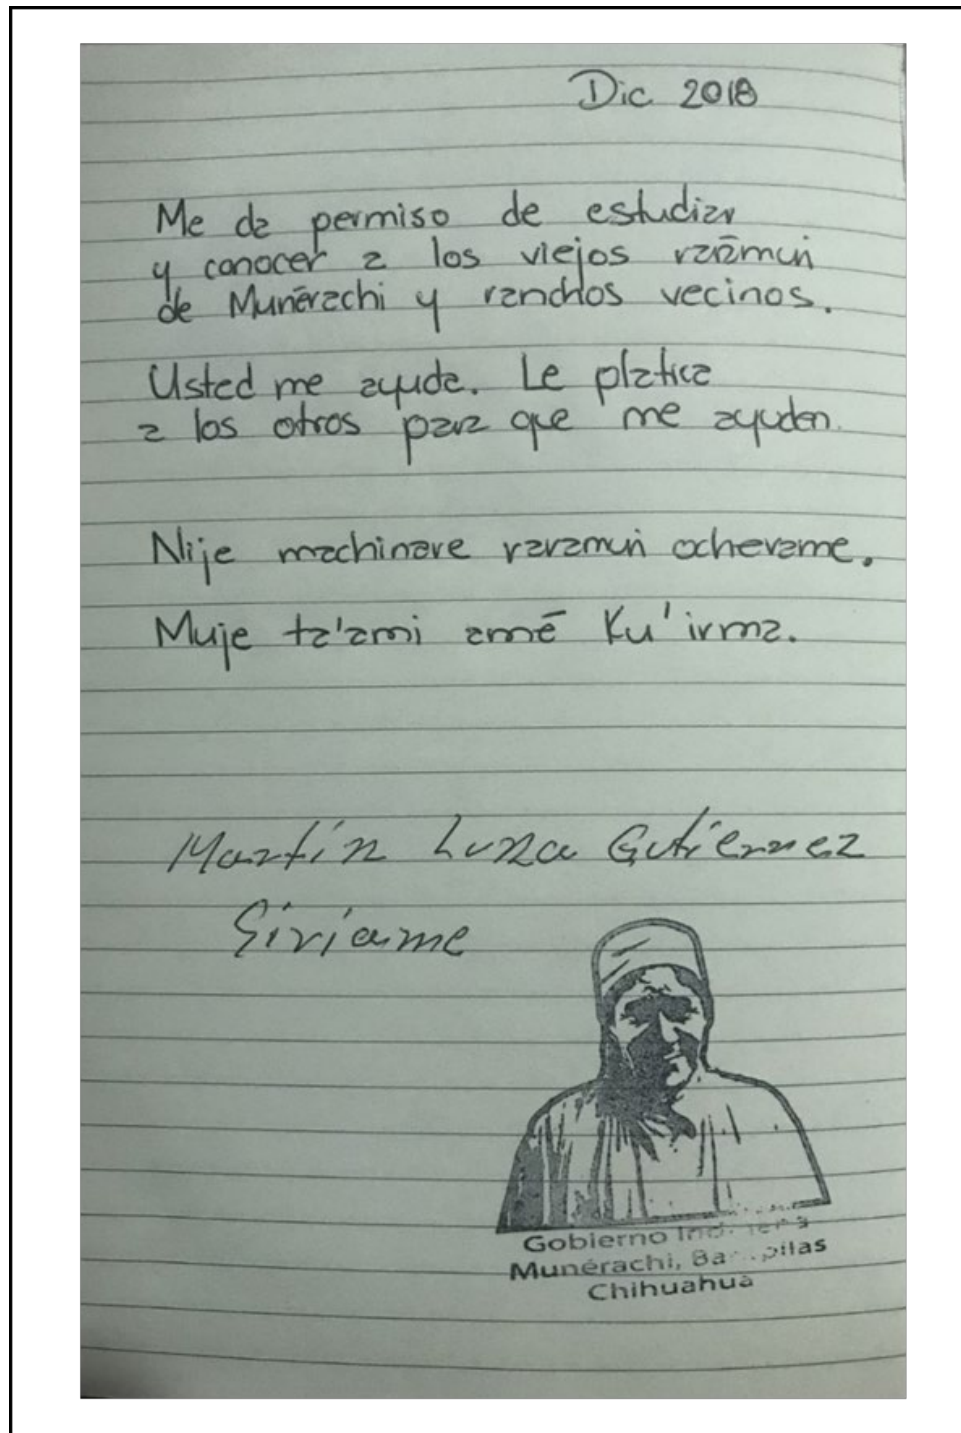 Dic 2018
Me da permiso de estudiar
y conocer a los viejos rarámuri
de Munérachi y ranchos vecinos.
Usted me ayuda. Le platica
a los otros para que me ayuden.
Nije machinare raramuri ocherame.
Muje ta'ami amé Ku'irma.
Martín Luna Gutiérrez
Siriame
Gobierno
Munérachi,
Chihuahua